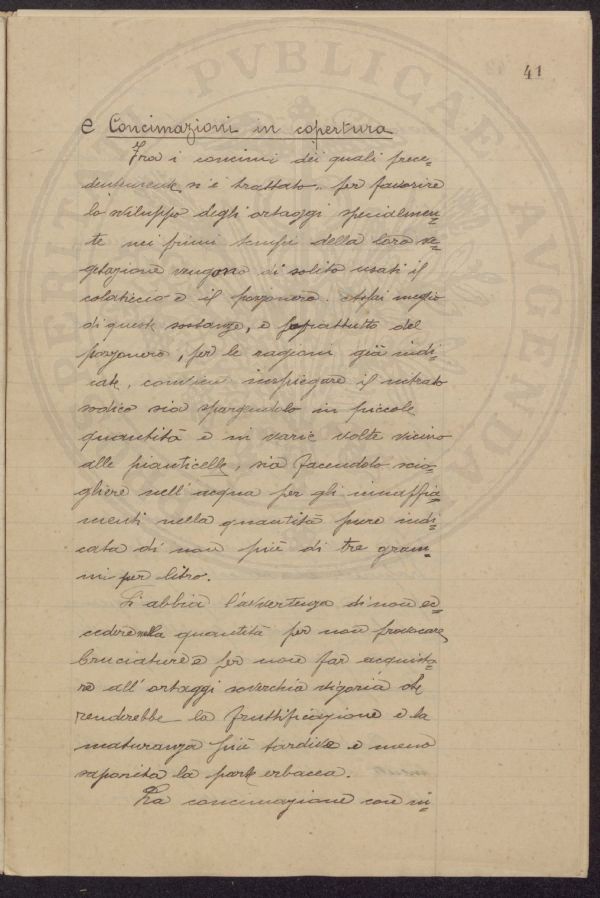 41
e Concimazioni in copertura
Fra i concimi dei quali prece=
dentemente s'è trattato, per favorire
lo sviluppo degli ortaggi specialmen=
te nei primi tempi della loro ve=
getazione vengono di solito usati il
colaticcio e il pozzonero. Assai meglio
di queste sostanze, e soprattutto del
pozzonero, per le ragioni già indi=
cate, conviene impiegare il nitrato
sodico sia spargendolo in piccole
quantità e in varie volte vicino
alle pianticelle, sia facendolo scio=
gliere nell'acqua per gli innaffia=
menti nella quantità pure indi=
cata di non più di tre gram=
mi per litro.
Si abbia l'avvertenza di non ec=
cedere nella quantità per non provocare
bruciature e per non far acquista=
re all'ortaggi soverchia vigoria che
renderebbe la fruttificazione e la
maturanza più tardive e meno
saporita la parte erbacea.
La concimazione con ni=
PROSPERITATI PVBLICAE AVGENDAE